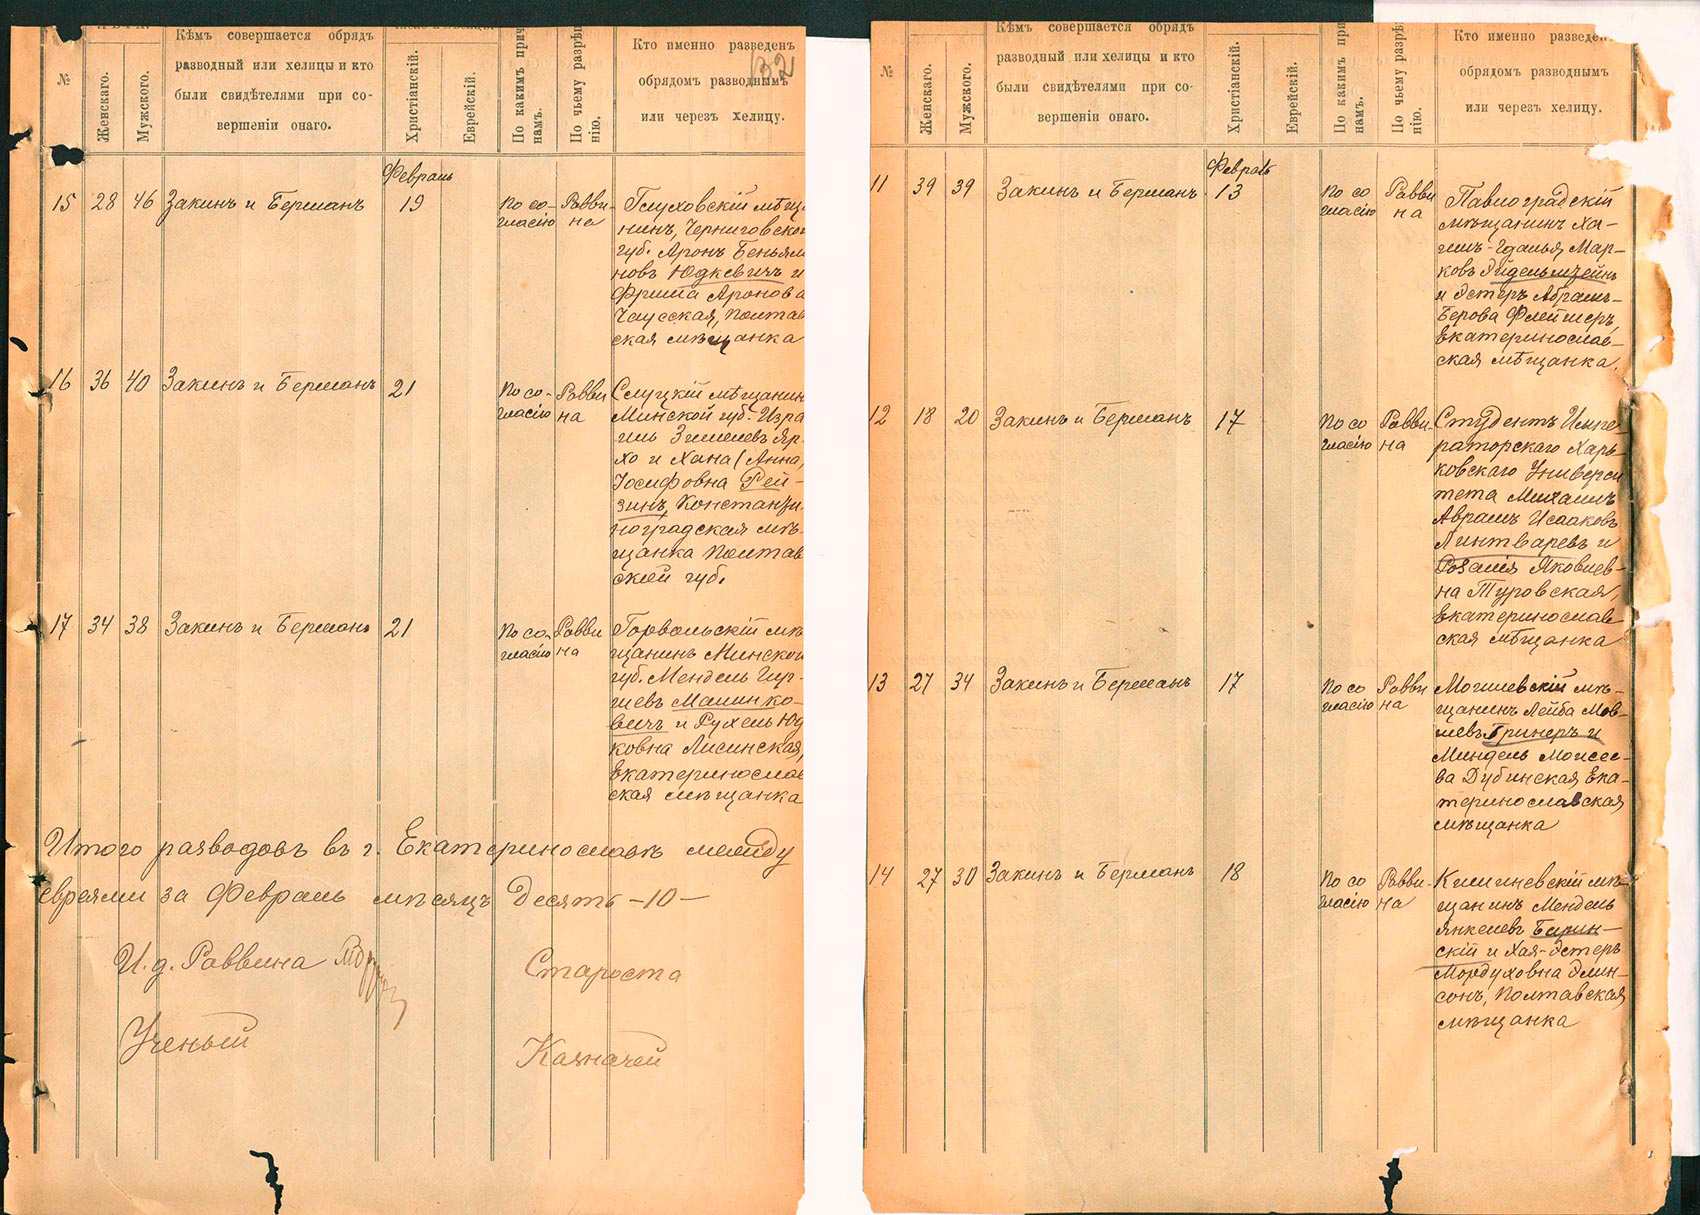 №
Женскаго.
Мужского.
Кѣмъ совершается обрядъ
разводный или хелицы и кто
были свидѣтелями при со-
вершеніи онаго.
Христіанскій.
Еврейскій.
По какимъ при
намъ.
По чьему разрѣ
нію.
Кто именно разведенъ
обрядомъ разводнымъ
или черезъ хелицу.
32
Февраль
15 28 46 Закинъ и Берманъ 19
По со-
гласію
Равви-
на
Глуховскій мѣщ
нинъ, Черниговской
губ. Аронъ Беньями
новъ Юдкевичъ и
Фрума Аронова
Чаусская, Полтав
ская мѣщанка
16 36 40 Закинъ и Берманъ 21
По со-
гласію
Равви
на
Слуцкій мѣщанин
Минской губ. Изра
иль Зимелевъ Яр-
хо и Хана (Анна)
Іосифовна Рей-
зинъ, Константи
ноградская мѣ-
щанка Полтав
ской губ.
17 34 38 Закинъ и Берманъ 21
По со-
гласію
Равви
на
Горвольскій мѣ
щанинъ Минской
губ. Мендель Гир-
шевъ Малинко-
вичъ и Рухель Юд
ковна Лисинская,
Екатеринослав
ская мѣщанка
Итого разводовъ въ г. Екатеринославѣ между
евреями за Февраль мѣсяцъ Десять -10-
И.д. Раввина
Староста
Ученый
Казначей
№
Женскаго.
Мужского.
Кѣмъ совершается обрядъ
разводный или хелицы и кто
были свидѣтелями при со-
вершеніи онаго.
Христіанскій.
Еврейскій.
По какимъ при
намъ.
По чьему разрѣ
нію.
Кто именно разведенъ
обрядомъ разводнымъ
или черезъ хелицу.
Февраль
11 39 39 Закинъ и Берманъ 13
По со
гласію
Равви
на
Павлоградскій
мѣщанинъ Ха-
имъ-Гдалья Мар-
ковъ Эйдельштейнъ
и Эстеръ Абрамъ-
Берова Флейшеръ,
Екатеринослав-
ская мѣщанка.
12 18 20 Закинъ и Берманъ 17
По со
гласію
Равви-
на
Студентъ Импе-
раторскаго Харь-
ковскаго Универси
тета Михаилъ
Аврамъ Исааковъ
Линтваревъ и
Розалія Яковлев-
на Туровская,
Екатеринослав
ская мѣщанка
13 27 34 Закинъ и Берманъ 17
По со
гласію
Равви
на
Могилевскій мѣ-
щанинъ Лейба Мов-
шевъ Гринеръ и
Миндель Моисее-
ва Дубинская Ека-
теринославская
мѣщанка
14 27 30 Закинъ и Берманъ 18
По со
гласію
Равви-
на
Кишиневскій мѣ-
щанинъ Мендель
Янкелевъ Барин-
скій и Хая-Эстеръ
Мордуховна Элин-
сонъ, Полтавская
мѣщанка